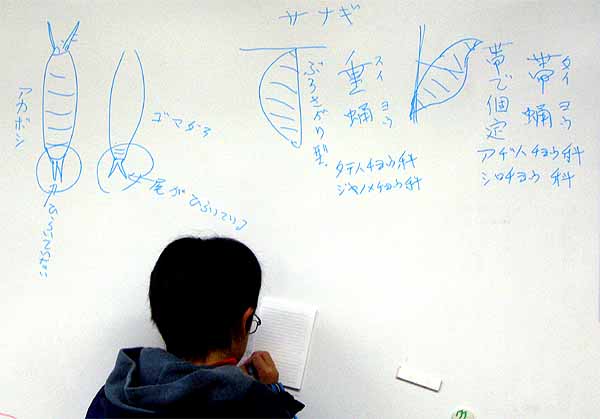 サナギ
アカボシ
ひらいてない
ゴマだら
尾がひらいている
スイヨウ
重蛹
ぶらさがり型
タテハチョウ科
ジャノメチョウ科
タイヨウ
帯蛹
帯で個定
アゲハチョウ科
シロチョウ科